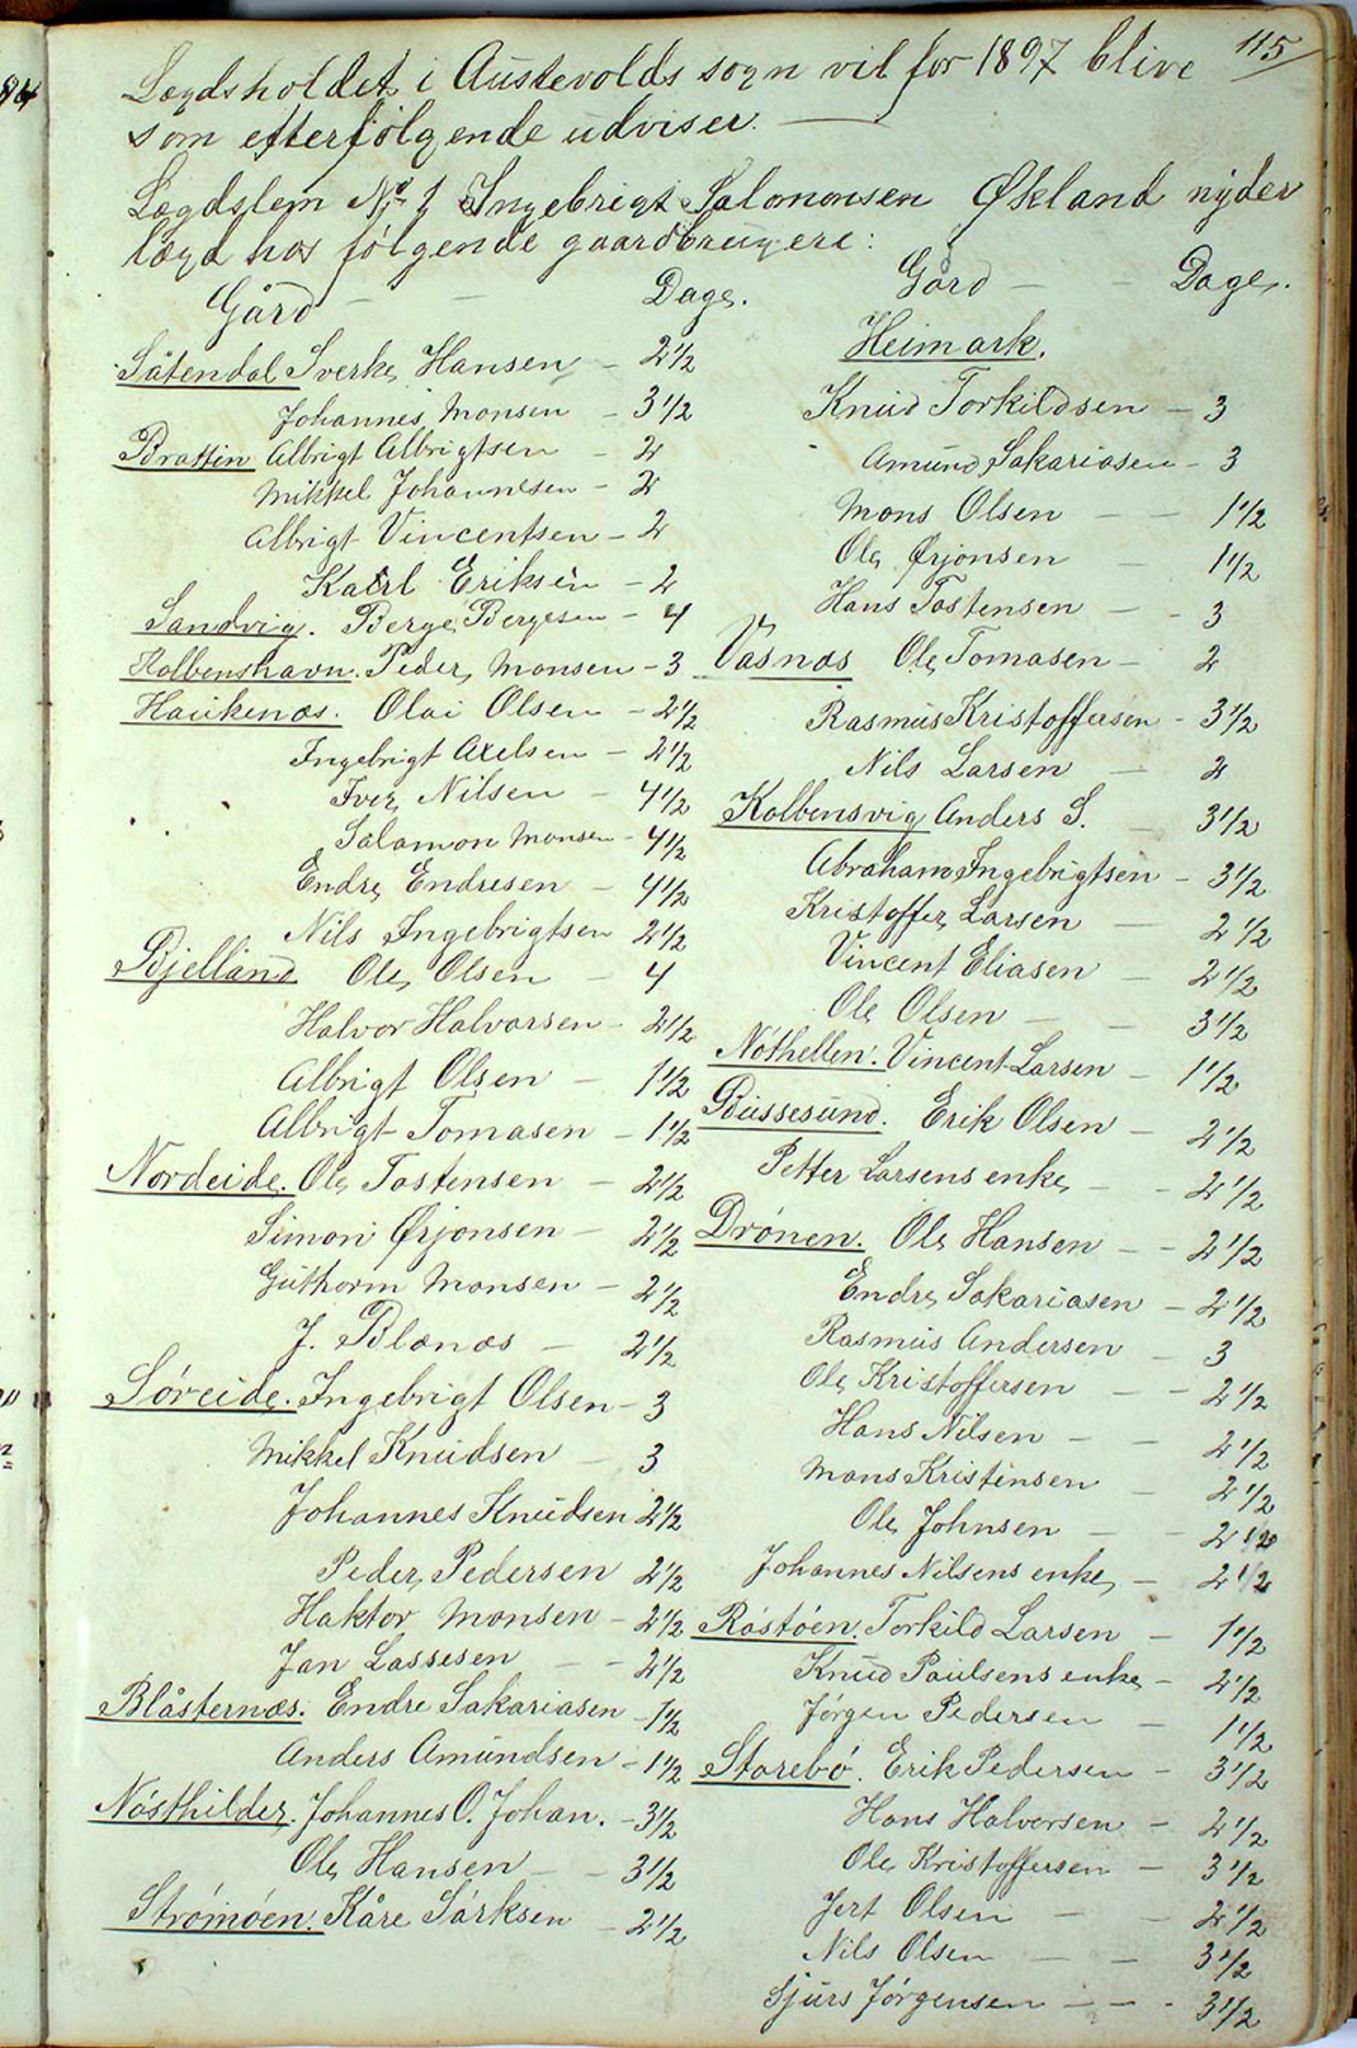 115
Lægdsholdet i Austevolds sogn vil for 1897 blive
som efterfölgende udviser.
Lægdslem No 1 Ingebrigt Salomonsen Økland nyder
lægd hos fölgende gaardbrugere:
Gård — — Dage.
Såtendal Sverke Hansen — 2 1/2
Johannes Monsen — 3 1/2
Brattin Albrigt Albrigtsen — 2
Mikkel Johannesen — 2
Albrigt Vincentsen — 2
Karl Eriksen — 2
Sandvig. Berge Bergesen — 4
Kolbenshavn. Peder Monsen — 3
Haukenæs. Olai Olsen — 2 1/2
Ingebrigt Axelsen — 2 1/2
Iver Nilsen — 4 1/2
Salamon Monsen — 4 1/2
Endre Endresen — 4 1/2
Nils Ingebrigtsen 2 1/2
Bjelland Ole Olsen — 4
Halvor Halvorsen — 2 1/2
Albrigt Olsen — 1 1/2
Albrigt Tomasen — 1 1/2
Nordeide. Ole Tostensen — 2 1/2
Simon Ørjonsen — 2 1/2
Guthorm Monsen — 2 1/2
J. Blænæs — 2 1/2
Söreide. Ingebrigt Olsen — 3
Mikkel Knudsen — 3
Johannes Knudsen 2 1/2
Peder Pedersen 2 1/2
Haktor Monsen — 2 1/2
Jan Lassesen — — 2 1/2
Blåsternæs. Endre Sakariasen — 1 1/2
Anders Amundsen — 1 1/2
Nösthilder. Johannes O. Johan. — 3 1/2
Ole Hansen — — 3 1/2
Strömöen. Kåre Sörksen — 2 1/2
Gård — — Dage.
Heimark.
Knud Torkildsen — 3
Amund Sakariasen — 3
Mons Olsen — — 1 1/2
Ole Ørjonsen — 1 1/2
Hans Tostensen — — 3
Vasnæs Ole Tomasen — 2
Rasmus Kristoffersen — 3 1/2
Nils Larsen — 2
Kolbensvig Anders S. — 3 1/2
Abraham Ingebrigtsen — 3 1/2
Kristoffer Larsen — 2 1/2
Vincent Eliasen — 2 1/2
Ole Olsen — — 3 1/2
Nóthellen. Vincent Larsen — 1 1/2
Bussesund. Erik Olsen — 2 1/2
Petter Larsens enke — — 2 1/2
Drönen. Ole Hansen — — 2 1/2
Endre Sakariasen — 2 1/2
Rasmus Andersen — 3
Ole Kristoffersen — — 2 1/2
Hans Nilsen — — 2 1/2
Mons Kristinsen — 2 1/2
Ole Johnsen — — 2 1/2
Johannes Nilsens enke — 2 1/2
Röstöen. Torkild Larsen — 1 1/2
Knud Paulsens enke — 2 1/2
Jörgen Pedersen — 1 1/2
Storebö. Erik Pedersen — 3 1/2
Hans Halvorsen — 2 1/2
Ole Kristoffersen — 3 1/2
Jert Olsen — — 2 1/2
Nils Olsen — — 3 1/2
Sjurs Jörgensen — — — 3 1/2